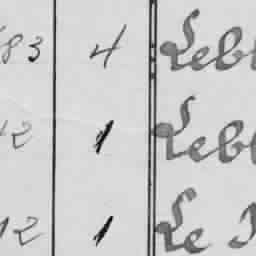 83 4 Leb
12 1 Leb
12 1 Le